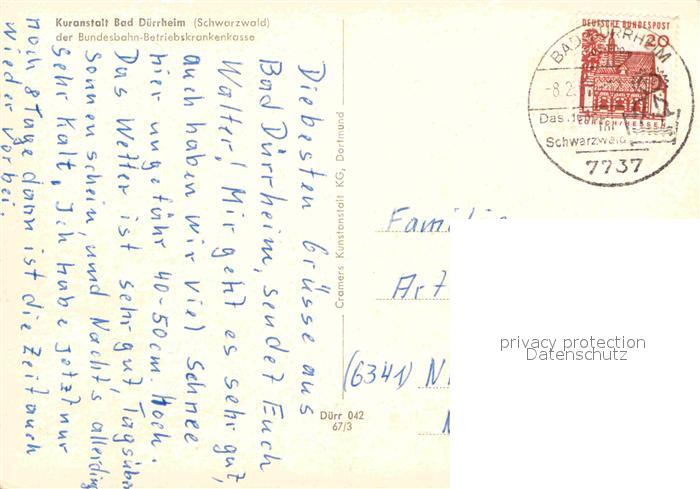 Kuranstalt Bad Dürrheim (Schwarzwald)
der Bundesbahn-Betriebskrankenkasse
Die besten Grüsse aus
Bad Dürrheim, sendet Euch
Walter! Mir geht es sehr gut,
auch haben wir viel Schnee
hier ungefähr 40-50cm. Hoch.
Das Wetter ist sehr gut, Tagsüber
Sonnenschein, und Nachts allerding
sehr Kalt, Ich habe jetzt nur
noch 8 Tage dann ist die Zeit auch
wieder vorbei.
Cramers Kunstanstalt KG, Dortmund
Dürr 042
67/3
DEUTSCHE BUNDESPOST
20
LORSCH/HESSEN
BAD DÜRRHEIM
-8.2.
Das
im
Schwarzwald
7737
Familie
Art
(6341) N
privacy protection
Datenschutz